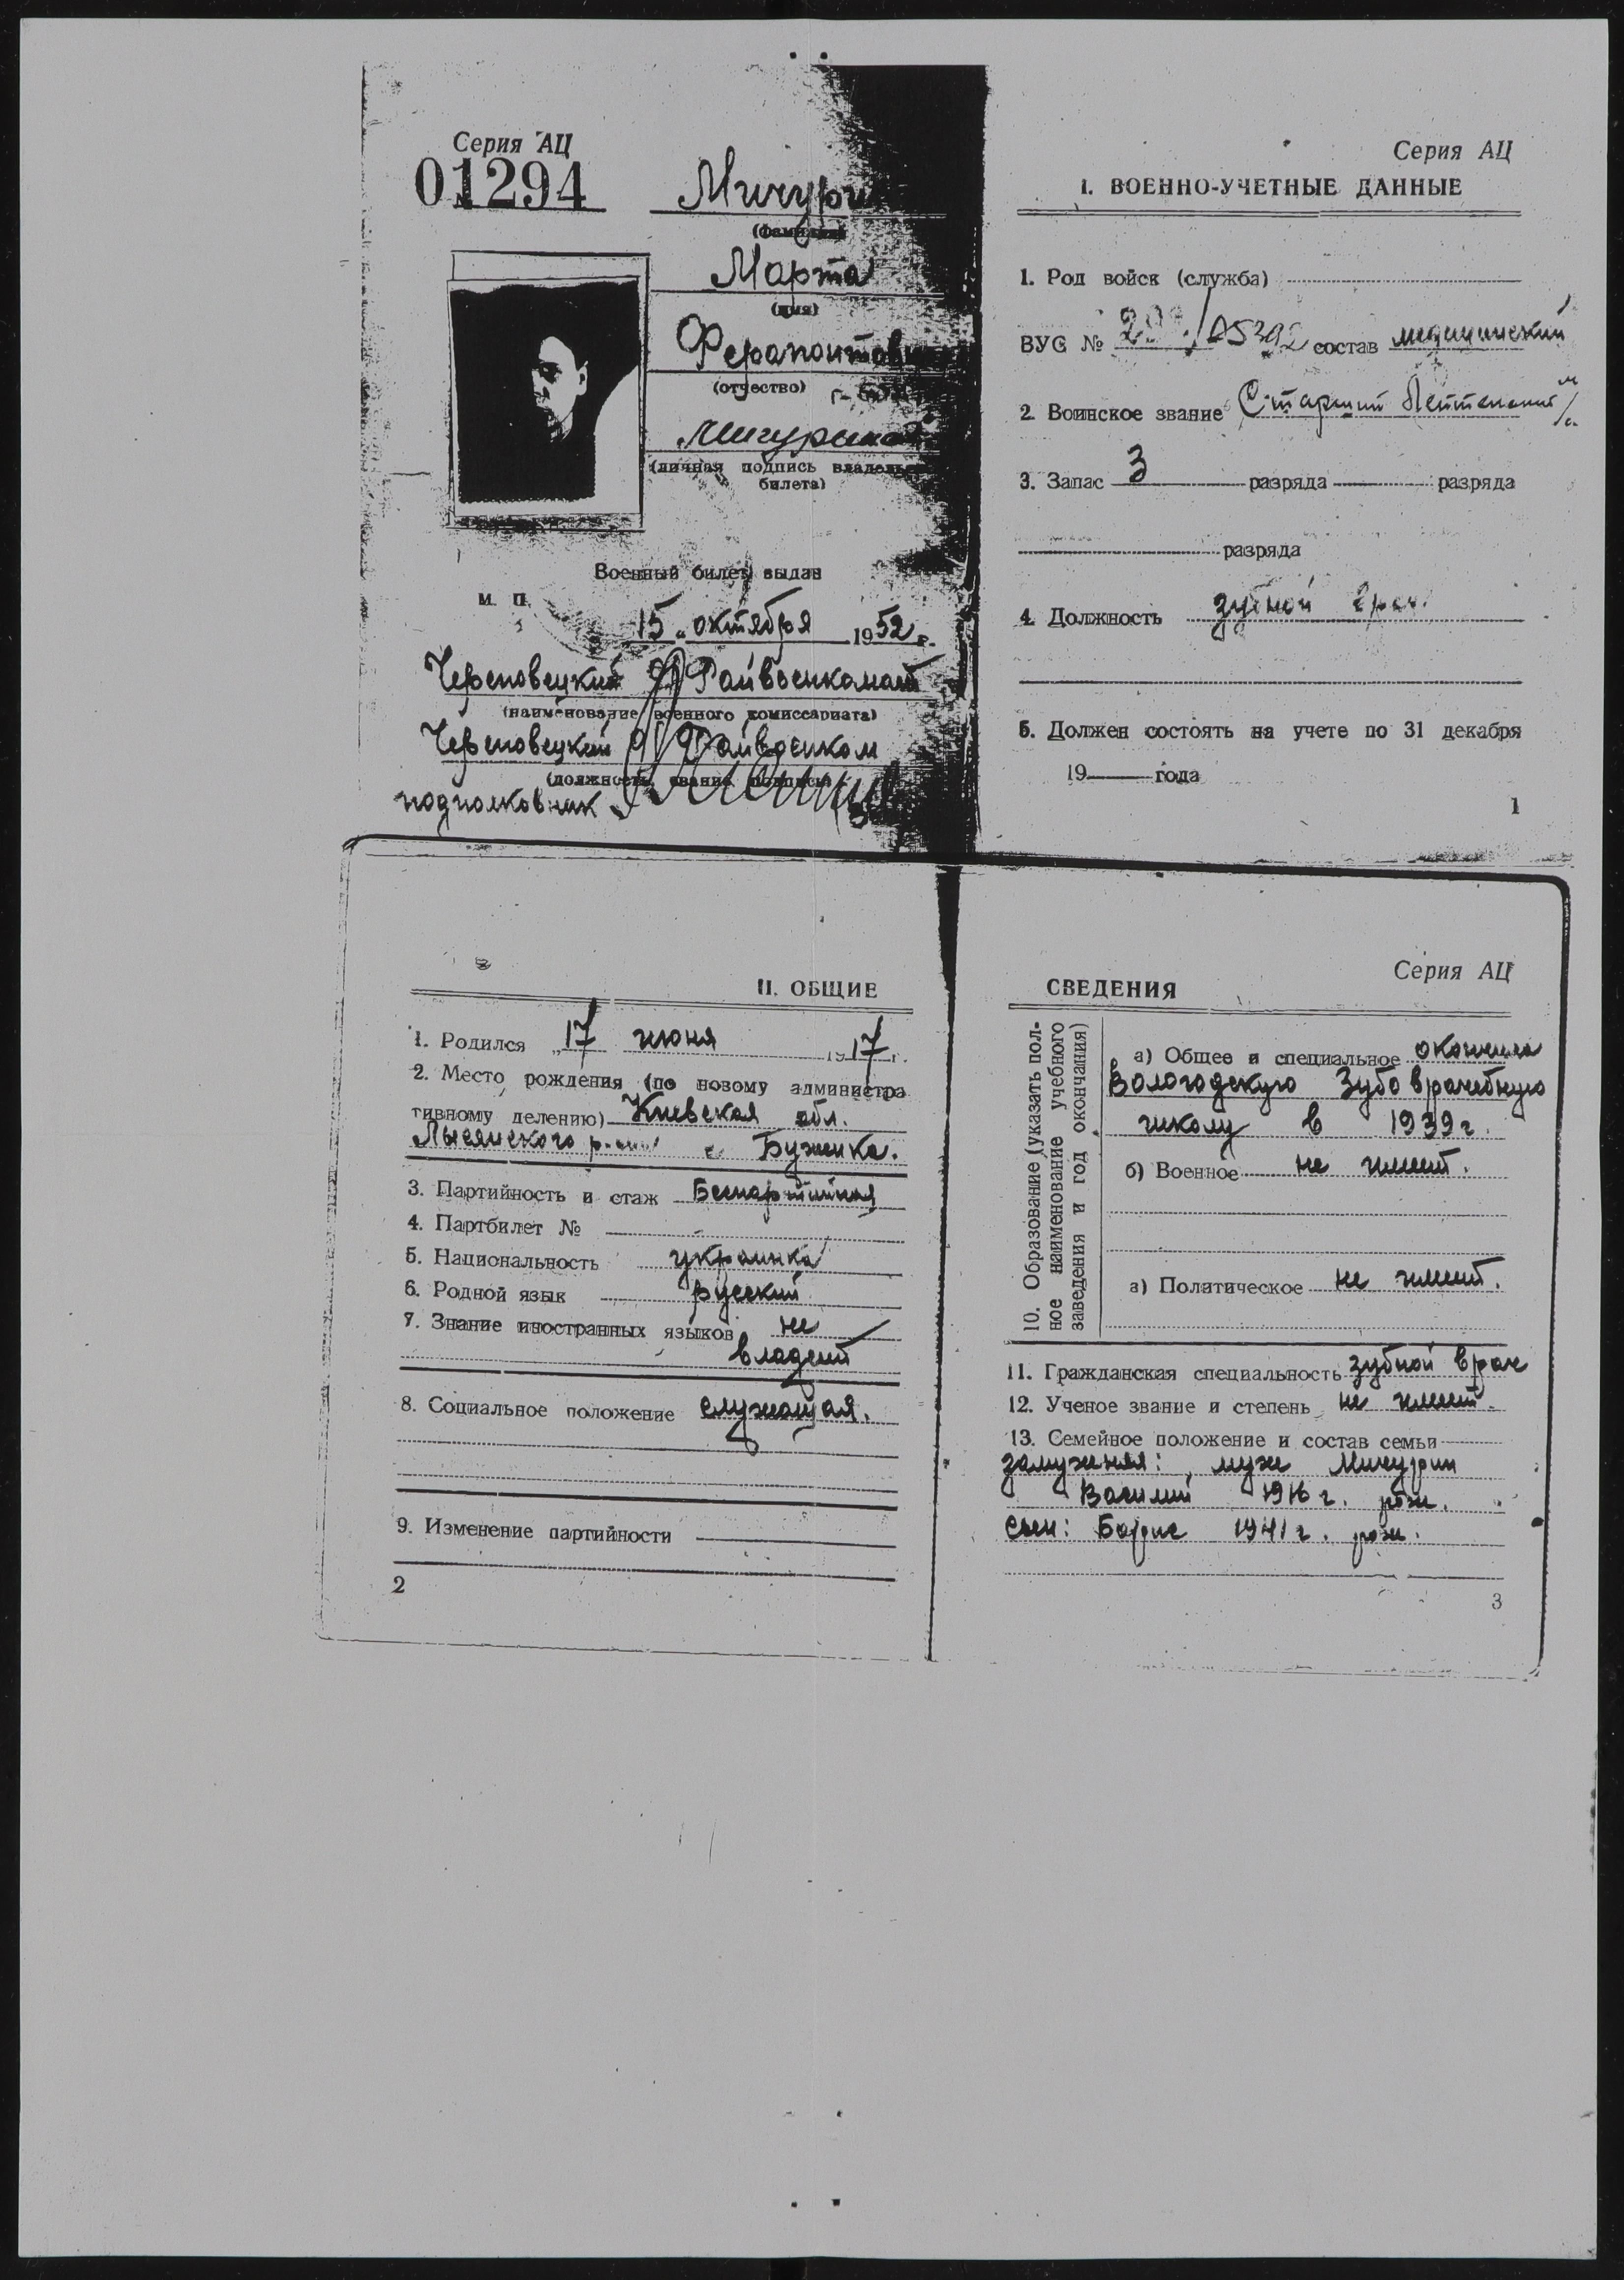 Серия АЦ
01294
Мичури
(фамилия)
Марта
(имя)
Ферапонтовн
(отчество)
(личная подпись владельца
билета)
Военный билет выдан
м. п.
15 " октября 1952 г.
Череповецкий Райвоенкомат
(наименование военного комиссариата)
Череповецкий Райвоенком
(должность, звание, подпись)
подполковник
Серия АЦ
I. ВОЕННО-УЧЕТНЫЕ ДАННЫЕ
1. Род войск (служба)
ВУС № состав медицинский
2. Воинское звание Старший Лейтенант м/с.
3. Запас 3 разряда разряда
разряда
4. Должность зубной врач
5. Должен состоять на учете по 31 декабря
19 года
1
II. ОБЩИЕ
1. Родился "17 июня 1917 г.
2. Место рождения (по новому администра
тивному делению) Киевская обл.
Лысянского с Бужанка.
3. Партийность и стаж Беспартийная
4. Партбилет №
5. Национальность украинка
6. Родной язык русский
7. Знание иностранных языков не
владеет
8. Социальное положение служащая.
9. Изменение партийности
2
Серия АЦ
СВЕДЕНИЯ
10. Образование (указать пол-
ное наименование учебного
заведения и год окончания)
а) Общее и специальное окончила
Вологодскую Зубоврачебную
школу в 1939 г.
б) Военное не имеет.
в) Политическое не имеет.
11. Гражданская специальность зубной врач
12. Ученое звание и степень не имеет.
13. Семейное положение и состав семьи
замужняя: муж Мичурин
Василий 1916 г. рож.
сын: Борис 1941 г. рож.
3